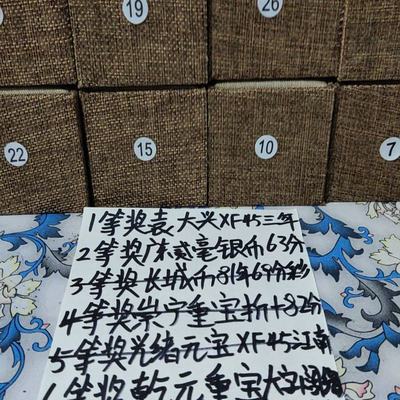 19
26
22
15
10
7
1等奖袁大头XF45三年
2等奖广东贰毫银币63分
3等奖长城币81年69分
4等奖崇宁重宝折十82分
5等奖光绪元宝XF45江南
乾元重宝大字